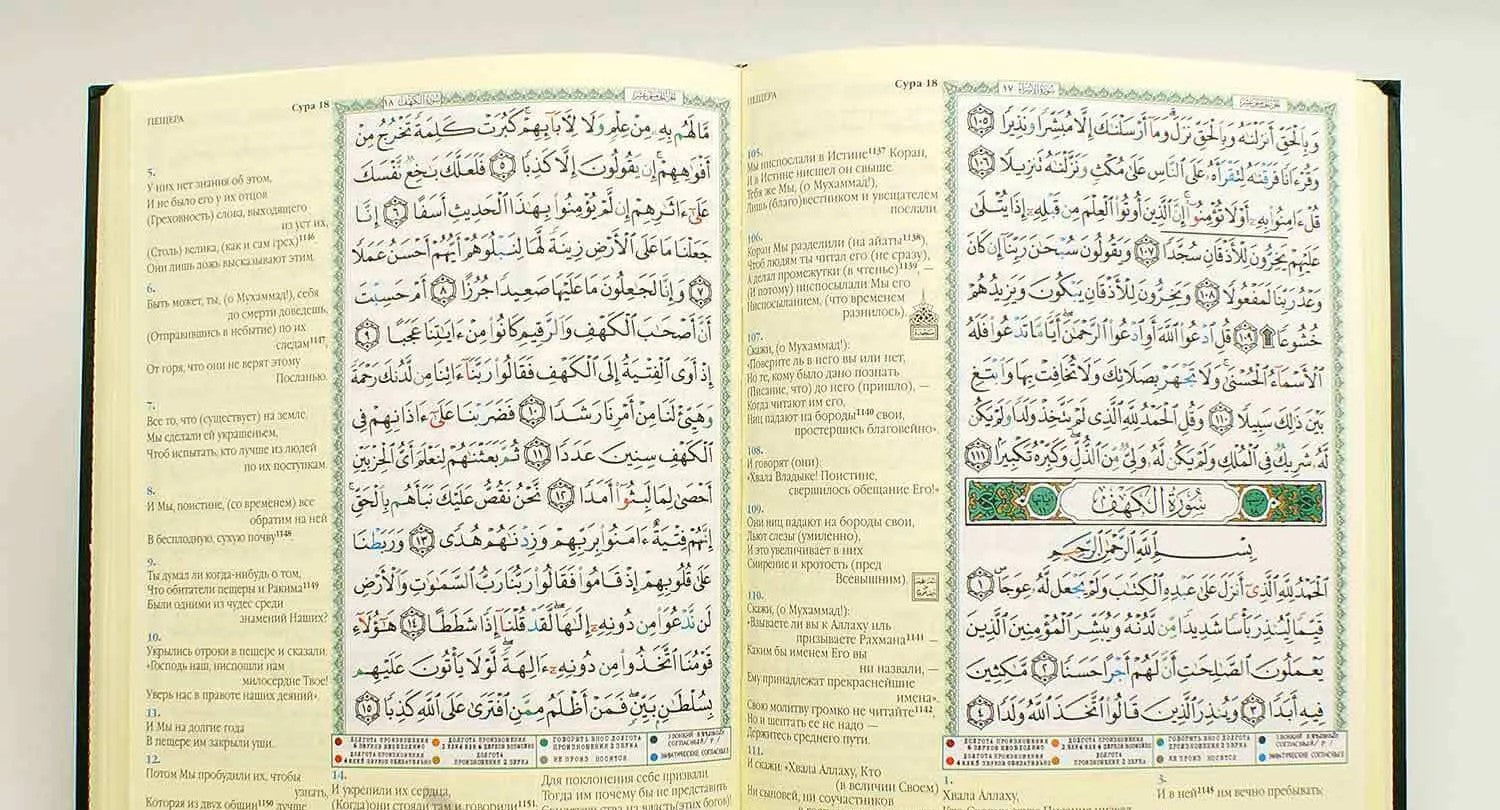 ПЕЩЕРА
Сура 18
105.
Мы ниспослали в Истине1137 Коран,
И в Истине нисшел он свыше.
Тебя же Мы, (о Мухаммад!),
Лишь (благо)вестником и увещателем
послали.
106.
Коран Мы разделили (на айаты1138),
Чтоб людям ты читал его (не сразу),
А делал промежутки (в чтенье)1139, —
(И потому) ниспослали Мы его
Ниспосыланием, (что временем
разнилось).
107.
Скажи, (о Мухаммад!):
«Поверите ль в него вы или нет,
Но те, кому было дано познать
(Писание, что) до него (пришло), —
Когда читают им его,
Ниц падают на бороды1140 свои,
простершись благовейно».
108.
И говорят (они):
«Хвала Владыке! Поистине,
свершилось обещание Его!»
109.
Они ниц падают на бороды свои,
Льют слезы (умиленно),
И это увеличивает в них
Смирение и кротость (пред
Всевышним).
110.
Скажи, (о Мухаммад!):
«Взываете ли вы к Аллаху иль
призываете Рахмана1141 —
Каким бы именем Его вы
ни назвали, —
Ему принадлежат прекраснейшие
имена».
Свою молитву громко не читайте1142,
Но и шептать ее не надо —
Держитесь среднего пути.
111.
И скажи: «Хвала Аллаху, Кто
(в величии Своем)
Ни сыновей, ни соучастников
١٧ سُورَةُ الإِسْرَاءِ
وَبِٱلْحَقِّ أَنزَلْنَٰهُ وَبِٱلْحَقِّ نَزَلَ ۗ وَمَآ أَرْسَلْنَٰكَ إِلَّا مُبَشِّرًا وَنَذِيرًا ١٠٥
وَقُرْءَانًا فَرَقْنَٰهُ لِتَقْرَأَهُۥ عَلَى ٱلنَّاسِ عَلَىٰ مُكْثٍ وَنَزَّلْنَٰهُ تَنزِيلًا ١٠٦
قُلْ ءَامِنُوا۟ بِهِۦٓ أَوْ لَا تُؤْمِنُوٓا۟ ۚ إِنَّ ٱلَّذِينَ أُوتُوا۟ ٱلْعِلْمَ مِن قَبْلِهِۦٓ إِذَا يُتْلَىٰ
عَلَيْهِمْ يَخِرُّونَ لِلْأَذْقَانِ سُجَّدًا ١٠٧ وَيَقُولُونَ سُبْحَٰنَ رَبِّنَآ إِن كَانَ
وَعْدُ رَبِّنَا لَمَفْعُولًا ١٠٨ وَيَخِرُّونَ لِلْأَذْقَانِ يَبْكُونَ وَيَزِيدُهُمْ
خُشُوعًا ۩ ١٠٩ قُلِ ٱدْعُوا۟ ٱللَّهَ أَوِ ٱدْعُوا۟ ٱلرَّحْمَٰنَ ۖ أَيًّا مَّا تَدْعُوا۟ فَلَهُ
ٱلْأَسْمَآءُ ٱلْحُسْنَىٰ ۚ وَلَا تَجْهَرْ بِصَلَاتِكَ وَلَا تُخَافِتْ بِهَا وَٱبْتَغِ
بَيْنَ ذَٰلِكَ سَبِيلًا ١١٠ وَقُلِ ٱلْحَمْدُ لِلَّهِ ٱلَّذِى لَمْ يَتَّخِذْ وَلَدًا وَلَمْ يَكُن
لَّهُۥ شَرِيكٌ فِى ٱلْمُلْكِ وَلَمْ يَكُن لَّهُۥ وَلِىٌّ مِّنَ ٱلذُّلِّ ۖ وَكَبِّرْهُ تَكْبِيرًا ١١١
سُورَةُ الْكَهْفِ
بِسْمِ ٱللَّهِ ٱلرَّحْمَٰنِ ٱلرَّحِيمِ
ٱلْحَمْدُ لِلَّهِ ٱلَّذِىٓ أَنزَلَ عَلَىٰ عَبْدِهِ ٱلْكِتَٰبَ وَلَمْ يَجْعَل لَّهُۥ عِوَجَا ۜ ١
قَيِّمًا لِّيُنذِرَ بَأْسًا شَدِيدًا مِّن لَّدُنْهُ وَيُبَشِّرَ ٱلْمُؤْمِنِينَ ٱلَّذِينَ
يَعْمَلُونَ ٱلصَّٰلِحَٰتِ أَنَّ لَهُمْ أَجْرًا حَسَنًا ٢ مَّٰكِثِينَ
فِيهِ أَبَدًا ٣ وَيُنذِرَ ٱلَّذِينَ قَالُوا۟ ٱتَّخَذَ ٱللَّهُ وَلَدًا ٤
1.
Хвала Аллаху,
3.
И в ней1145 им вечно пребывать;
ПЕЩЕРА
Сура 18
5.
У них нет знания об этом,
И не было его у их отцов.
(Греховность) слова, выходящего
из уст их,
(Столь) велика, (как и сам грех)1146.
Они лишь ложь высказывают этим.
6.
Быть может, ты, (о Мухаммад!), себя
до смерти доведешь,
(Отправившись в небытие) по их
следам1147,
От горя, что они не верят этому
Посланью.
7.
Все то, что (существует) на земле,
Мы сделали ей украшеньем,
Чтоб испытать, кто лучше из людей
по их поступкам.
8.
И Мы, поистине, (со временем) все
обратим на ней
В бесплодную, сухую почву1148.
9.
Ты думал ли когда-нибудь о том,
Что обитатели пещеры и Ракима1149
Были одними из чудес среди
знамений Наших?
10.
Укрылись отроки в пещере и сказали:
«Господь наш, ниспошли нам
милосердие Твое!
Уверь нас в правоте наших деяний».
11.
И Мы на долгие года
В пещере им закрыли уши.
12.
Потом Мы пробудили их, чтобы
узнать,
Которая из двух общин1150 лучше
١٨ سُورَةُ الْكَهْفِ
مَّا لَهُم بِهِۦ مِنْ عِلْمٍ وَلَا لِأٓبَآئِهِمْ ۚ كَبُرَتْ كَلِمَةً تَخْرُجُ مِنْ
أَفْوَٰهِهِمْ ۚ إِن يَقُولُونَ إِلَّا كَذِبًا ٥ فَلَعَلَّكَ بَٰخِعٌ نَّفْسَكَ
عَلَىٰٓ ءَاثَٰرِهِمْ إِن لَّمْ يُؤْمِنُوا۟ بِهَٰذَا ٱلْحَدِيثِ أَسَفًا ٦ إِنَّا
جَعَلْنَا مَا عَلَى ٱلْأَرْضِ زِينَةً لَّهَا لِنَبْلُوَهُمْ أَيُّهُمْ أَحْسَنُ عَمَلًا
٧ وَإِنَّا لَجَٰعِلُونَ مَا عَلَيْهَا صَعِيدًا جُرُزًا ٨ أَمْ حَسِبْتَ
أَنَّ أَصْحَٰبَ ٱلْكَهْفِ وَٱلرَّقِيمِ كَانُوا۟ مِنْ ءَايَٰتِنَا عَجَبًا ٩
إِذْ أَوَى ٱلْفِتْيَةُ إِلَى ٱلْكَهْفِ فَقَالُوا۟ رَبَّنَآ ءَاتِنَا مِن لَّدُنكَ رَحْمَةً
وَهَيِّئْ لَنَا مِنْ أَمْرِنَا رَشَدًا ١٠ فَضَرَبْنَا عَلَىٰٓ ءَاذَانِهِمْ فِى
ٱلْكَهْفِ سِنِينَ عَدَدًا ١١ ثُمَّ بَعَثْنَٰهُمْ لِنَعْلَمَ أَىُّ ٱلْحِزْبَيْنِ
أَحْصَىٰ لِمَا لَبِثُوٓا۟ أَمَدًا ١٢ نَّحْنُ نَقُصُّ عَلَيْكَ نَبَأَهُم بِٱلْحَقِّ ۚ
إِنَّهُمْ فِتْيَةٌ ءَامَنُوا۟ بِرَبِّهِمْ وَزِدْنَٰهُمْ هُدًى ١٣ وَرَبَطْنَا
عَلَىٰ قُلُوبِهِمْ إِذْ قَامُوا۟ فَقَالُوا۟ رَبُّنَا رَبُّ ٱلسَّمَٰوَٰتِ وَٱلْأَرْضِ
لَن نَّدْعُوَا۟ مِن دُونِهِۦٓ إِلَٰهًا ۖ لَّقَدْ قُلْنَآ إِذًا شَطَطًا ١٤ هَٰٓؤُلَآءِ
قَوْمُنَا ٱتَّخَذُوا۟ مِن دُونِهِۦٓ ءَالِهَةً ۖ لَّوْلَا يَأْتُونَ عَلَيْهِم
بِسُلْطَٰنٍۭ بَيِّنٍ ۖ فَمَنْ أَظْلَمُ مِمَّنِ ٱفْتَرَىٰ عَلَى ٱللَّهِ كَذِبًا ١٥
14.
И укрепили их сердца,
(Когда)они стояли там и говорили1151:
Для поклонения себе призвали
Тогда им почему бы не представить